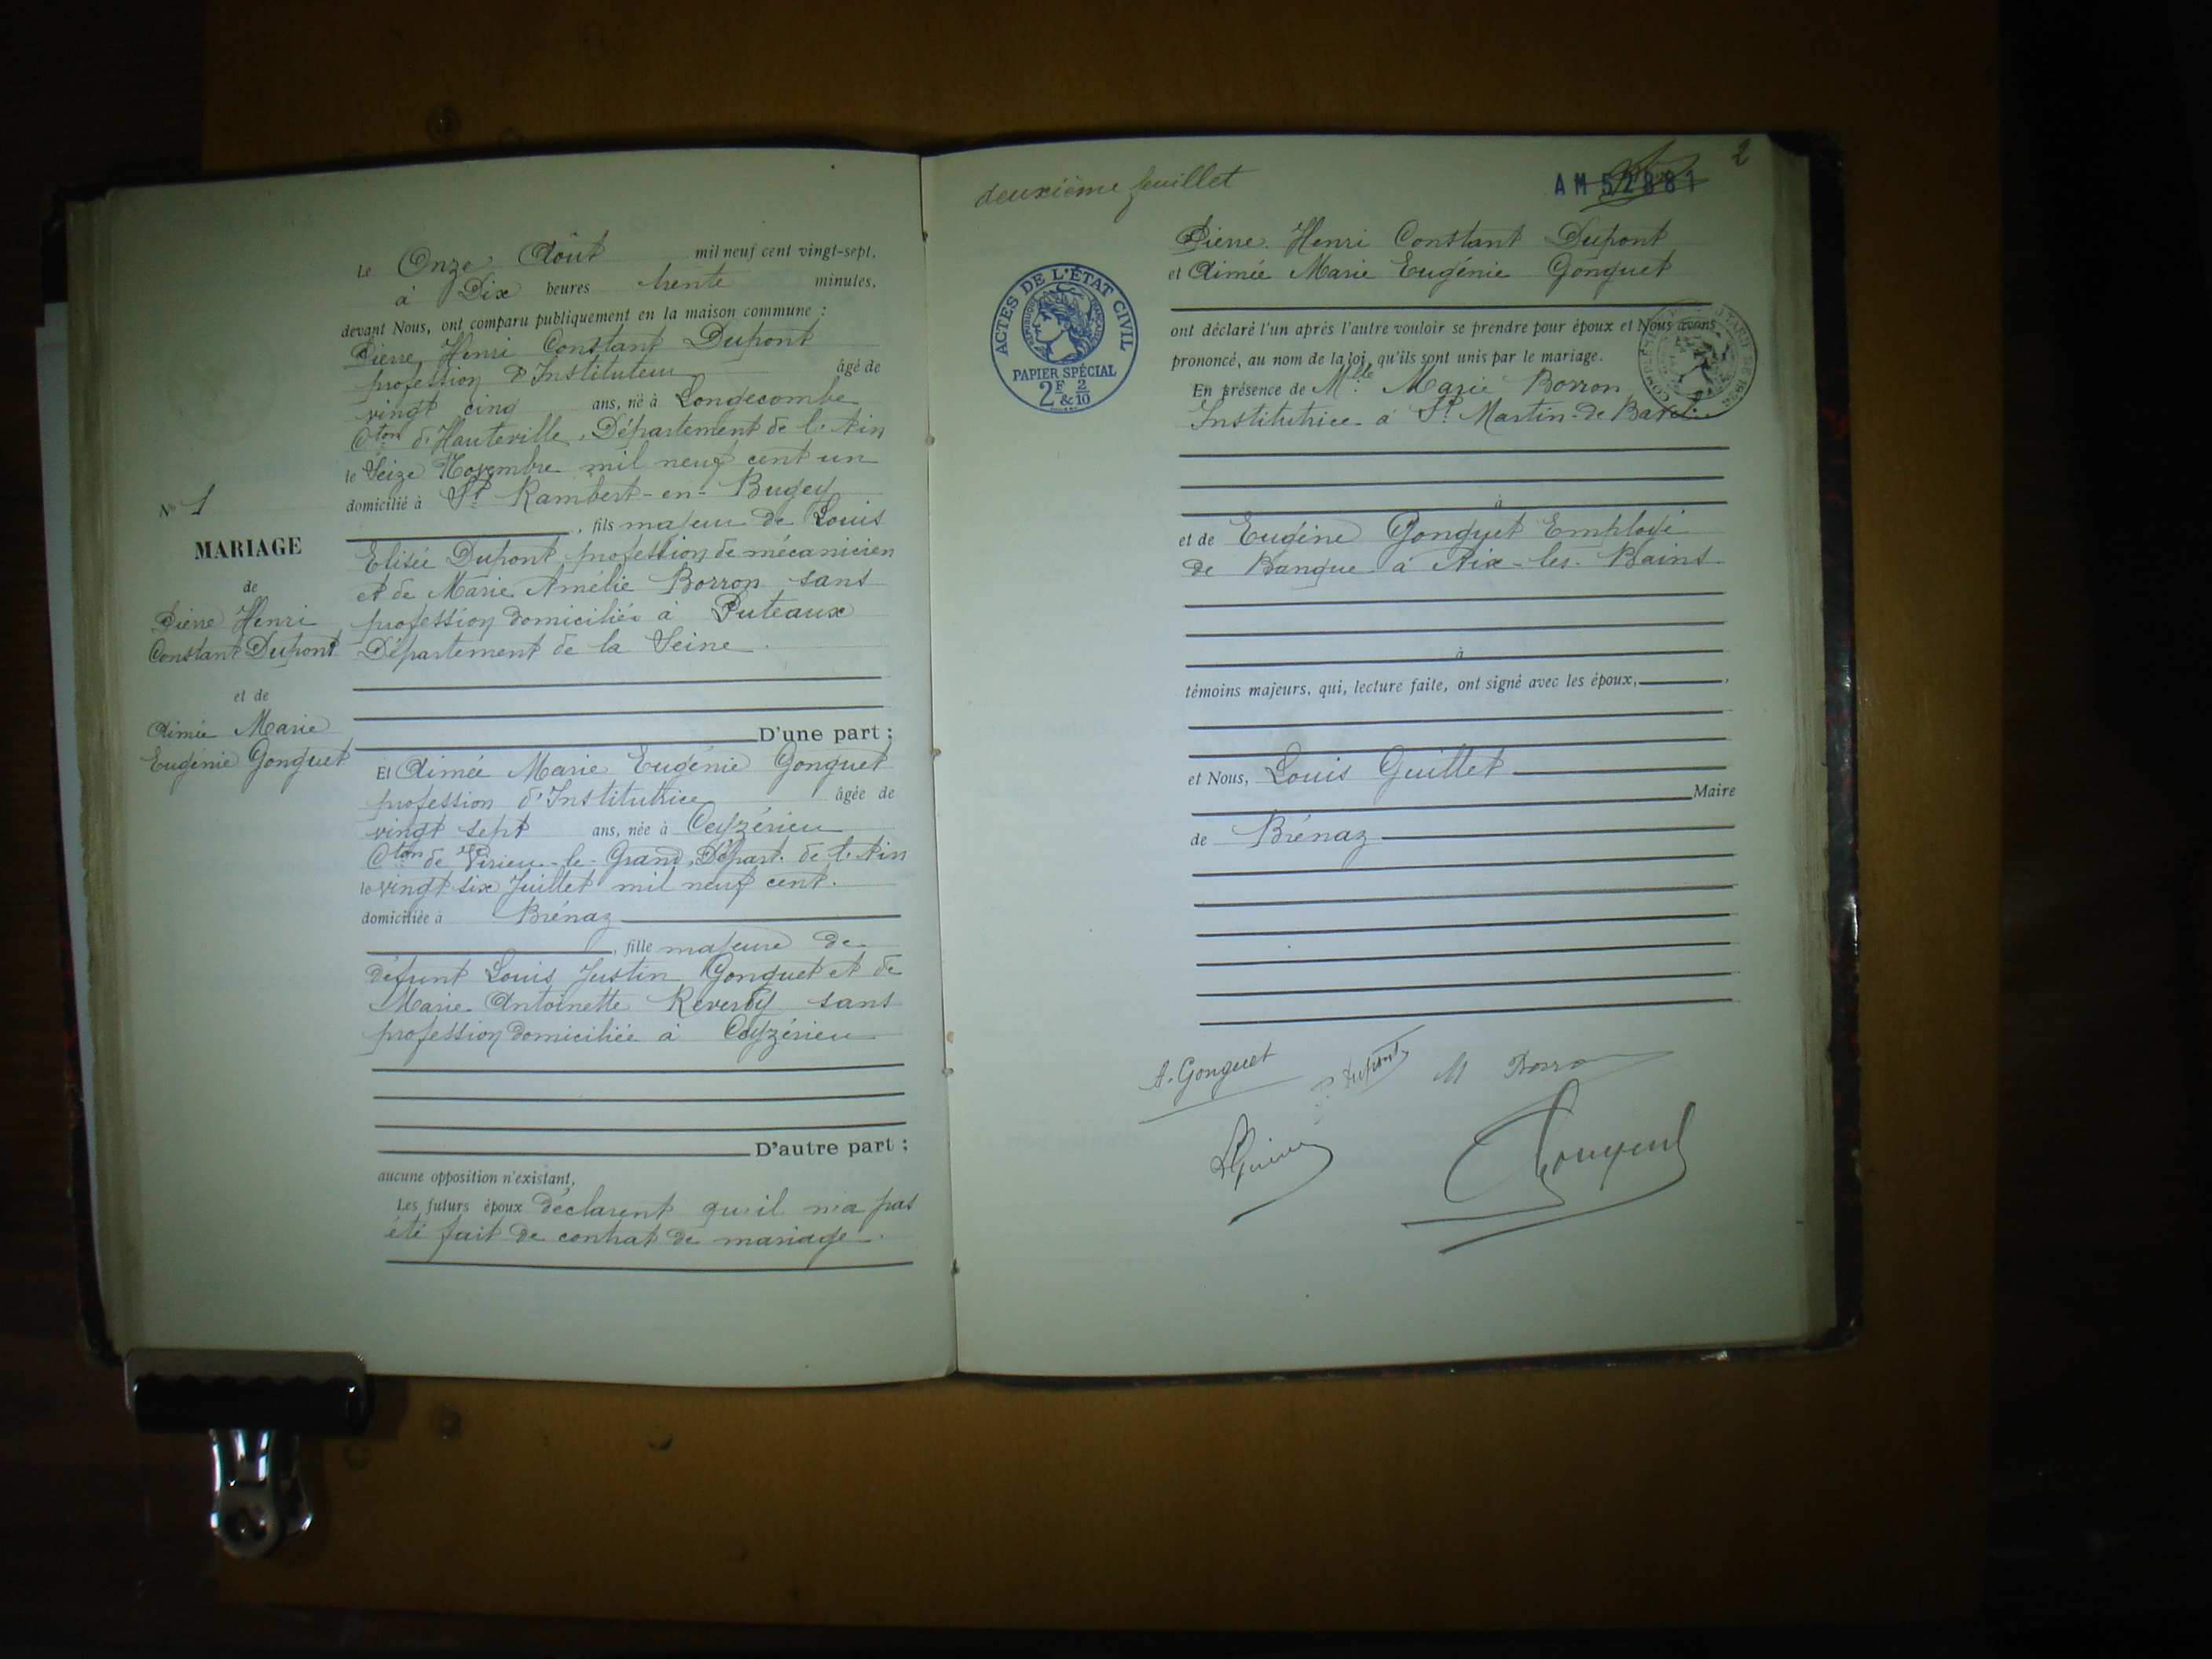 Le Onze Août mil neuf cent vingt-sept,
à Dix heures trente minutes,
devant Nous, ont comparu publiquement en la maison commune :
Pierre Henri Constant Dupont
profession d'Instituteur âgé de
vingt cinq ans, né à Longecombe
Cton d'Hauteville, Département de l'Ain
le Seize Novembre mil neuf cent un
domicilié à St Rambert-en-Bugey
, fils majeur de Louis
Elisée Dupont profession de mécanicien
et de Marie Amélie Borron sans
profession domiciliés à Puteaux
Département de la Seine.
D'une part :
No 1
MARIAGE
de
Pierre Henri
Constant Dupont
et de
Aimée Marie
Eugénie Gonguet
Et Aimée Marie Eugénie Gonguet
profession d'Institutrice âgée de
vingt sept ans, née à Ceyzérieu
Cton de Virieu-le-Grand, Départ. de l'Ain
le vingt six Juillet mil neuf cent.
domiciliée à Brénaz
, fille majeure de
défunt Louis Justin Gonguet et de
Marie Antoinette Reverdy sans
profession domiciliée à Ceyzérieu
D'autre part :
aucune opposition n'existant,
Les futurs époux déclarent qu'il n'a pas
été fait de contrat de mariage.
deuxième feuillet
2
AM 52881
ACTES DE L'ÉTAT CIVIL
RÉPUBLIQUE FRANÇAISE
PAPIER SPÉCIAL
2F & 2/10
Pierre Henri Constant Dupont
et Aimée Marie Eugénie Gonguet
ont déclaré l'un après l'autre vouloir se prendre pour époux et Nous avons
prononcé, au nom de la loi, qu'ils sont unis par le mariage.
En présence de Mlle Marie Borron
Institutrice à St Martin-de-Bavel.
à
et de Eugène Gonguet Employé
de Banque à Aix-les-Bains
à
témoins majeurs, qui, lecture faite, ont signé avec les époux,
et Nous, Louis Guillet
Maire
de Brénaz
A. Gonguet
P. Dupont
M Borron
Gonguet